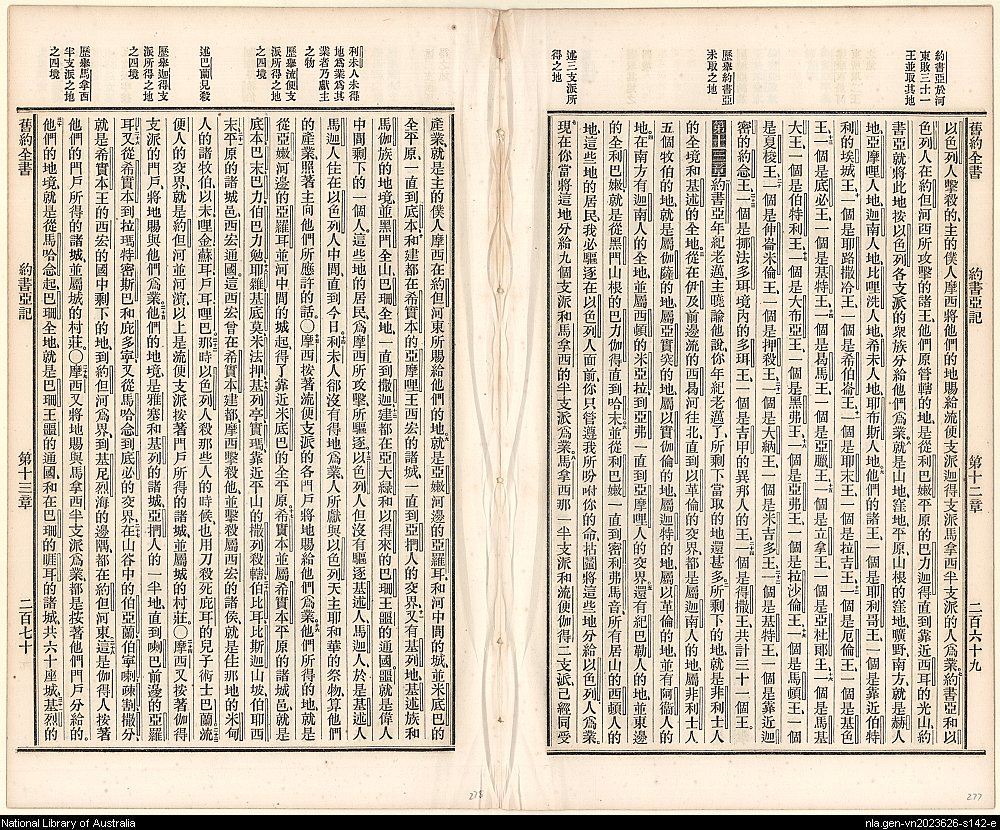 約書亞於河
東敗三十一
王並取其地
歷舉約書亞
未取之地
述三支派所
得之地
舊約全書
約書亞記
第十二章
二百六十九
以色列人擊殺的主的僕人摩西將他們的地賜給流便支派迦得支派馬拿西半支派的人爲業約書亞和以
色列人在約但河西所攻擊的諸王他們原管轄的地是從利巴嫩平原的巴力迦得直到靠近西耳的光山約
書亞就將此地按以色列各支派的衆族分給他們爲業就是山地窪地平原山根的窪地曠野南方就是赫人
地亞摩哩人地迦南人地比哩洗人地希未人地耶布斯人地他們的諸王一個是耶利哥王一個是靠近伯特
利的埃城王一個是耶路撒冷王一個是希伯崙王一個是耶末王一個是拉吉王一個是厄倫王一個是基色
王一個是底必王一個是基特王一個是曷馬王一個是亞臘王一個是立拿王一個是亞杜郿王一個是馬基
大王一個是伯特利王一個是大布亞王一個是黑弗王一個是亞弗王一個是拉沙倫王一個是馬頓王一個
是夏悛王一個是伸崙米倫王一個是押殺王一個是大納王一個是米吉多王一個是基特王一個是靠近迦
密的約念王一個是挪法多珥境內的多珥王一個是吉甲的異邦人的王一個是得撒王共計三十一個王
第十三章約書亞年紀老邁主曉諭他說你年紀老邁了所剩下當取的地還甚多所剩下的地就是非利士人
的全境和基述的全地從在伊及前邊流的西曷河往北直到以革倫的交界都是屬迦南人的地屬非利士人
五個牧伯的地就是屬伽薩的地屬亞實突的地屬以實伽倫的地屬迦特的地屬以革倫的地並有阿衞人的
地在南方有迦南人的全地並屬西頓的米亞拉到亞弗一直到亞摩哩人的交界還有紀巴勒人的地並東邊
的全利巴嫩就是從黑門山根的巴力伽得直到哈末並從利巴嫩一直到密利弗馬音所有居山的西頓人的
地這些地的居民我必驅逐在以色列人面前你只管遵我所吩咐你的命拈鬮將這些地分給以色列人爲業
現在你當將這地分給九個支派和馬拿西的半支派爲業馬拿西那一半支派和流便伽得二支派已經同受
利未人未得
地爲業爲其
業者乃獻主
之物
歷舉流便支
派所得之地
之四境
述巴蘭見殺
歷舉迦得支
派所得之地
之四境
歷舉馬拿西
半支派之地
之四境
產業就是主的僕人摩西在約但河東所賜給他們的地就是亞嫩河邊的亞羅耳和河中間的城並米底巴的
全平原一直到底本和建都在希實本的亞摩哩王西宏的諸城一直到亞捫人的交界又有基列地基述族和
馬伽族的地境並黑門全山巴珊全地一直到撒迦建都在亞大綠和以得來的巴珊王噩的通國噩就是偉人
中間剩下的一個人這些地的居民爲摩西所攻擊所驅逐以色列人但沒有驅逐基述人馬迦人於是基述人
馬迦人住在以色列人中間直到今日利未人卻沒有得地爲業人所獻與以色列天主耶和華的祭物算他們
的產業照著主向他們所應許的話〇摩西按著流便支派的各門戶將地賜給他們爲業他們所得的地就是
從亞嫩河邊的亞羅耳並河中間的城起得了靠近米底巴的全平原希實本並屬希實本平原的諸城邑就是
底本巴末巴力伯巴力勉耶雜基底莫米法押基列亭實瑪靠近平山的撒列殺轄伯比耳比斯迦山坡伯耶西
末平原的諸城邑西宏通國這西宏曾在希實本建都摩西擊殺他並擊殺屬西宏的諸侯就是住那地的米甸
人的諸牧伯以未哩金蘇耳戶耳哩巴那時以色列人殺那些人的時候也用刀殺死庇耳的兒子術士巴蘭流
便人的交界就是約但河並河濱以上是流便支派按著門戶所得的諸城並屬城的村莊〇摩西又按著伽得
支派的門戶將地賜與他們爲業他們的地境是雅塞和基列的諸城亞捫人的一半地直到喇巴前邊的亞羅
耳又從希實本到拉瑪特密斯巴和庇多寧又從馬哈念到底必的交界在山谷中的伯亞蘭伯寧喇疎割撒分
就是希實本王的西宏的國中剩下的地到約但河爲界到基尼烈海的邊隅都在約但河東這是伽得人按著
他們的門戶所得的諸城並屬城的村莊〇摩西又將地賜與馬拿西半支派爲業都是按著他們門戶分給的
他們的地境就是從馬哈念起巴珊全地就是巴珊王噩的通國和在巴珊的睚耳的諸城共六十座城基列的
舊約全書
約書亞記
第十三章
二百七十
278
277
National Library of Australia
nla.gen-vn2023626-s142-e